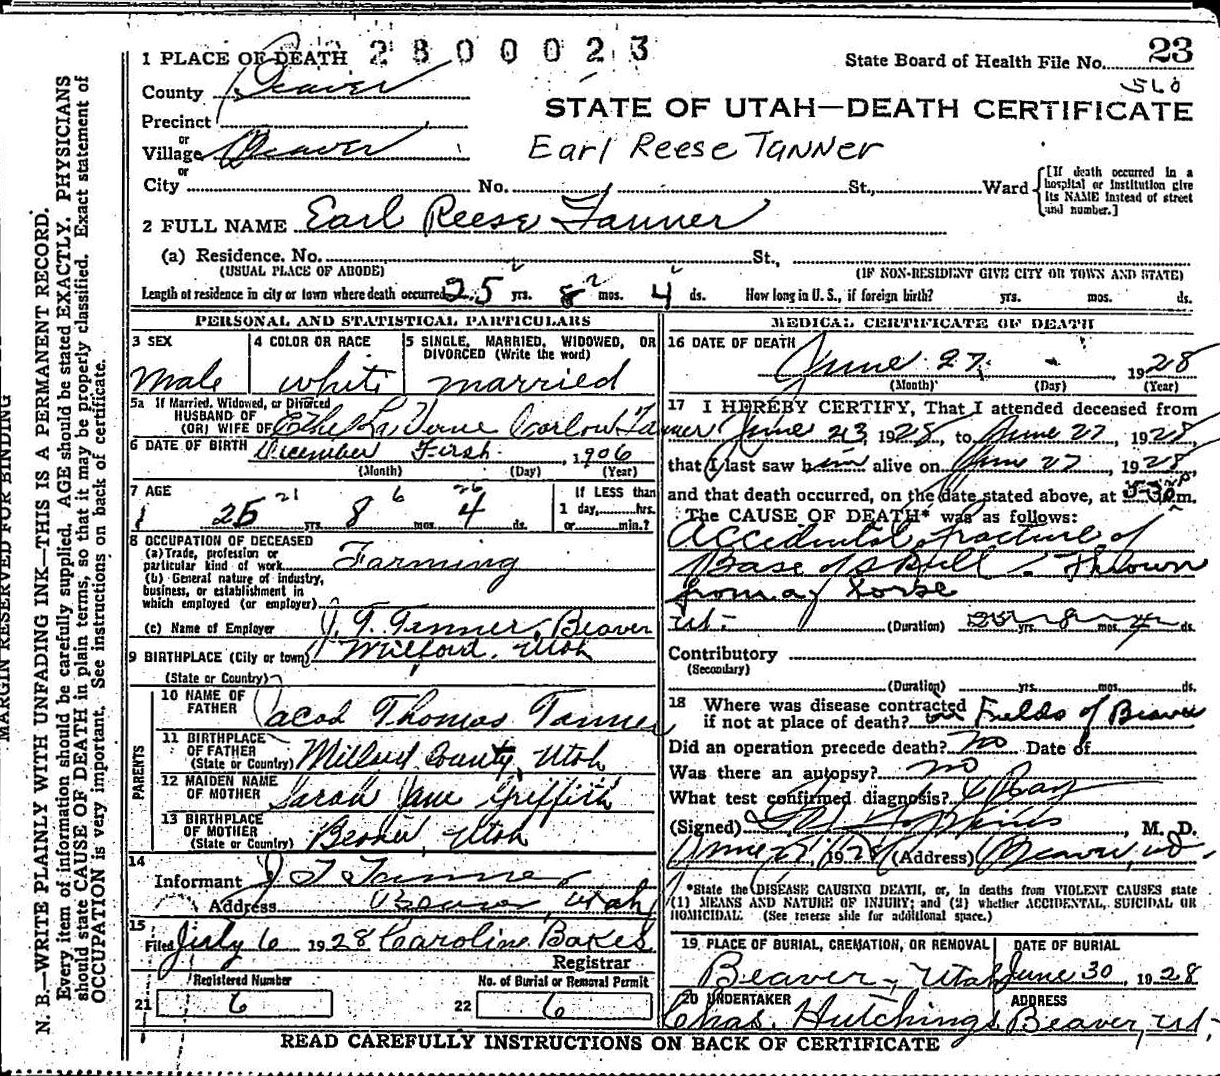 1 PLACE OF DEATH 2800023
State Board of Health File No. 23
560
County Beaver
STATE OF UTAH—DEATH CERTIFICATE
Precinct
or
Village Beaver
Earl Reese Tanner
or
City No. St., Ward
[If death occurred in a hospital or institution give its NAME instead of street and number.]
2 FULL NAME Earl Reese Tanner
(a) Residence. No. St.,
(USUAL PLACE OF ABODE) (IF NON-RESIDENT GIVE CITY OR TOWN AND STATE)
Length of residence in city or town where death occurred 25 yrs. 8 mos. 4 ds. How long in U. S., if foreign birth? yrs. mos. ds.
PERSONAL AND STATISTICAL PARTICULARS
3 SEX
Male
4 COLOR OR RACE
white
5 SINGLE, MARRIED, WIDOWED, OR DIVORCED (Write the word)
married
5a If Married, Widowed, or Divorced
HUSBAND OF
(OR) WIFE OF Ethel LaVerne Carlow Tanner
6 DATE OF BIRTH December First 1906
(Month) (Day) (Year)
7 AGE
21 6 26
25 yrs. 8 mos. 4 ds.
If LESS than
1 day, hrs.
or min.?
8 OCCUPATION OF DECEASED
(a) Trade, profession or
particular kind of work Farming
(b) General nature of industry,
business, or establishment in
which employed (or employer)
(c) Name of Employer J. T. Tanner, Beaver
9 BIRTHPLACE (City or town) Milford, Utah
(State or Country)
PARENTS
10 NAME OF
FATHER Jacob Thomas Tanner
11 BIRTHPLACE
OF FATHER
(State or Country) Millard County, Utah
12 MAIDEN NAME
OF MOTHER Sarah Jane Griffith
13 BIRTHPLACE
OF MOTHER
(State or Country) Beaver, Utah
14
Informant J T Tanner
Address Beaver Utah
15
Filed July 6 1928 Caroline Bakes
Registrar
Registered Number No. of Burial or Removal Permit
21 6 22 6
MEDICAL CERTIFICATE OF DEATH
16 DATE OF DEATH
June 27 1928
(Month) (Day) (Year)
17 I HEREBY CERTIFY, That I attended deceased from
June 23, 1928, to June 27, 1928
that I last saw him alive on June 27, 1928
and that death occurred, on the date stated above, at 5-30 p m.
The CAUSE OF DEATH* was as follows:
Accidental fracture of
Base of skull. Thrown
from a horse
(Duration) yrs. 8 mos. 4 ds.
Contributory
(Secondary)
(Duration) yrs. mos. ds.
18 Where was disease contracted
if not at place of death? in Fields of Beaver
Did an operation precede death? no Date of
Was there an autopsy? no
What test confirmed diagnosis? X Ray
(Signed) , M. D.
June 27, 1928 (Address) Beaver, Ut.
*State the DISEASE CAUSING DEATH, or, in deaths from VIOLENT CAUSES state
(1) MEANS AND NATURE OF INJURY; and (2) whether ACCIDENTAL, SUICIDAL OR
HOMICIDAL. (See reverse side for additional space.)
19 PLACE OF BURIAL, CREMATION, OR REMOVAL DATE OF BURIAL
Beaver, Utah June 30, 1928
20 UNDERTAKER ADDRESS
Chas. Hutchings Beaver, Ut.
READ CAREFULLY INSTRUCTIONS ON BACK OF CERTIFICATE
MARGIN RESERVED FOR BINDING
N. B.—WRITE PLAINLY WITH UNFADING INK—THIS IS A PERMANENT RECORD.
Every item of information should be carefully supplied. AGE should be stated EXACTLY. PHYSICIANS
should state CAUSE OF DEATH in plain terms, so that it may be properly classified. Exact statement of
OCCUPATION is very important. See instructions on back of certificate.